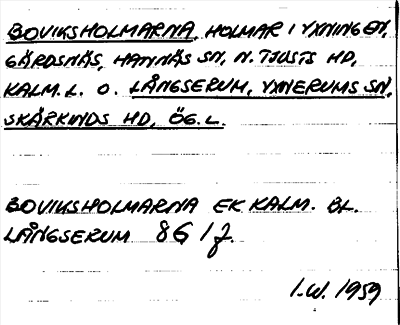 BOVIKSHOLMARNA, HOLMAR I YXNINGEN,
GÄRDSNÄS, HANNÄS SN, N. TJUSTS HD,
KALM. L. O. LÅNGSERUM, YXNERUMS SN,
SKÄRKINDS HD, ÖG. L.
BOVIKSHOLMARNA EK KALM. BL.
LÅNGSERUM 8G 1 f.
I.W. 1959